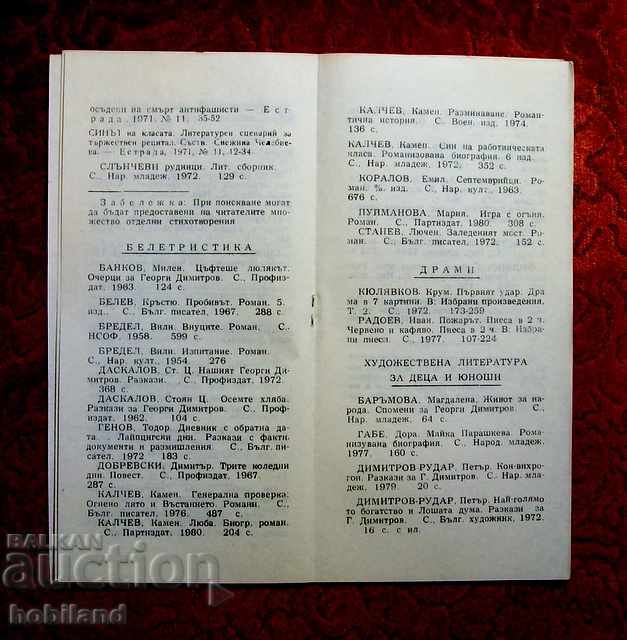 осъдени на смърт антифашисти — Ест
рада, 1971, № 11, 35-52
СИНЪТ на класата. Литературен сценарий за
тържествен рецитал. Съств. Снежина Челебие-
ва. — Естрада, 1971, № 11, 12-34.
СЛЪНЧЕВИ рудници. Лит. сборник.
С., Нар. младеж. 1972. 129 с.
Забележка: При поискване могат
да бъдат предоставени на читателите мно-
жество отделни стихотворения
БЕЛЕТРИСТИКА
БАНКОВ, Милен. Цъфтеше люлякът.
Очерци за Георги Димитров. С., Профиз-
дат. 1963. 124 с.
БЕЛЕВ, Кръстю. Пробивът. Роман. 5.
изд. С., Бълг. писател, 1967. 288 с.
БРЕДЕЛ, Вили. Внуците. Роман. С.,
НСОФ, 1958. 599 с.
БРЕДЕЛ, Вили. Изпитание. Роман.
С., Нар. култ., 1954. 276 с.
ДАСКАЛОВ, Ст. Ц. Нашият Георги Ди-
митров. Разкази. С., Профиздат. 1972.
368 с.
ДАСКАЛОВ, Стоян Ц. Осемте хляба.
Разкази за Георги Димитров. С., Проф-
издат. 1962. 104 с.
ГЕНОВ, Тодор. Дневник с обратна да-
та. Лайпцигски дни. Разкази с факти,
документи и размишления. С., Бълг. пи-
сател. 1972 183 с.
ДОБРЕВСКИ, Димитър. Трите коледни
дни. Повест. С., Профиздат. 1967.
287 с.
КАЛЧЕВ, Камен. Генерална проверка.
Огнено лято и Въстанието. Романи. С.,
Бълг. писател. 1976. 487 с.
КАЛЧЕВ, Камен. Люба. Биогр. роман.
С., Партиздат. 1980. 204 с.
КАЛЧЕВ, Камен. Разминаване. Роман-
тична история. С., Воен. изд. 1974.
136 с.
КАЛЧЕВ, Камен. Син на работническата
класа. Романизована биография. 6 изд.
С., Нар. младеж. 1972. 352 с.
КОРАЛОВ, Емил. Септемврийци. Ро-
ман. изд. С., Нар. култ., 1963.
676 с.
ПУЙМАНОВА, Мария. Игра с огъня.
Роман. С., Партиздат. 1980. 308 с.
СТАНЕВ, Лючен. Заледеният мост. Ро-
ман. С., Бълг. писател, 1972. 152 с.
ДРАМИ
КЮЛЯВКОВ, Крум. Първият удар. Дра
ма в 7 картини. В: Избрани произведения.
Т. 2. С., 1972. 173-259
РАДОЕВ, Иван. Пожарът. Пиеса в 2 ч.
Червено и кафяво. Пиеса в 2 ч. В: Избра-
ни пиеси. С., 1977. 107-224
ХУДОЖЕСТВЕНА ЛИТЕРАТУРА
ЗА ДЕЦА И ЮНОШИ
БАРЪМОВА, Магдалена. Живот за на-
рода. Спомени за Георги Димитров. С.,
Нар. младеж, 64 с.
ГАБЕ, Дора. Майка Парашкева. Рома-
низувана биография. С., Народ. младеж.
1977. 160 с.
ДИМИТРОВ-РУДАР, Петър. Кон-вихро-
гон. Разкази за Г. Димитров. С., Нар. мла-
деж. 1979. 20 с.
ДИМИТРОВ-РУДАР, Петър. Най-голямо
то богатство и Лошата дума. Разкази за
Г. Димитров. С., Бълг. художник, 1972.
16 с. с ил.
BALKAN
auction
hobiland